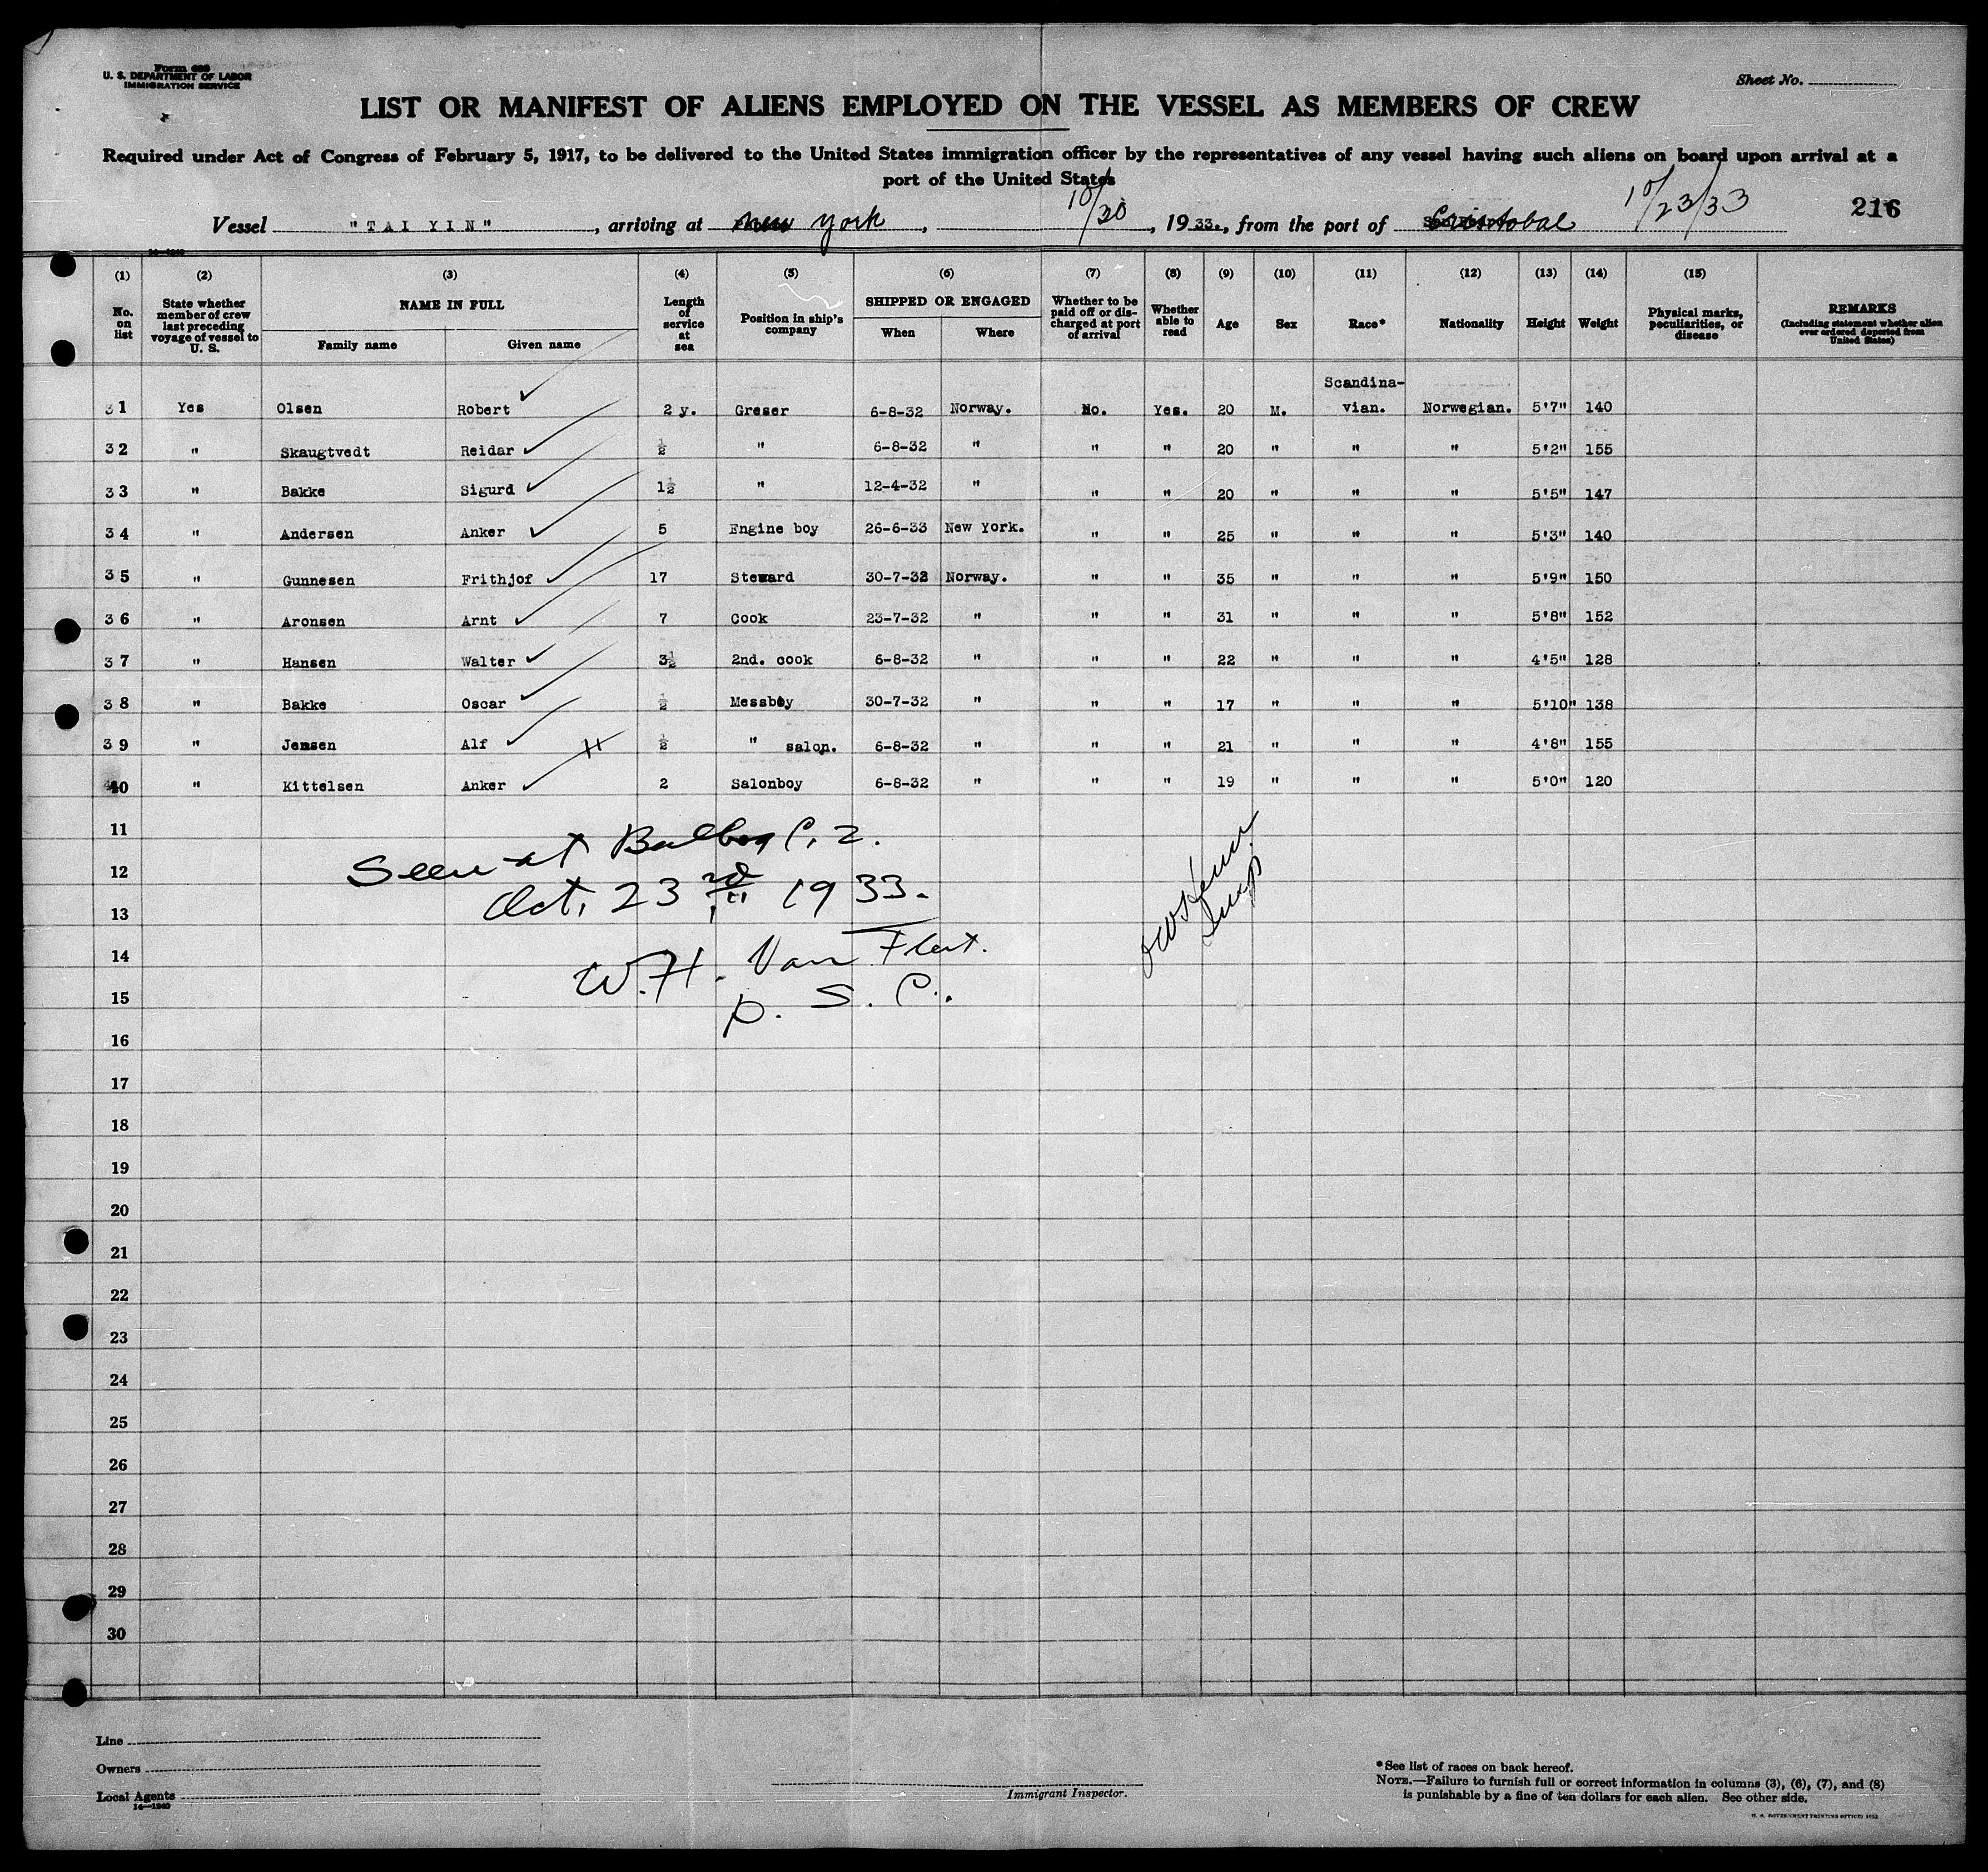 Form 680
U. S. DEPARTMENT OF LABOR
IMMIGRATION SERVICE
Sheet No.
LIST OR MANIFEST OF ALIENS EMPLOYED ON THE VESSEL AS MEMBERS OF CREW
Required under Act of Congress of February 5, 1917, to be delivered to the United States immigration officer by the representatives of any vessel having such aliens on board upon arrival at a
port of the United States
Vessel "TAI YIN", arriving at New York, 10/30, 1933., from the port of Cristobal 10/23/33 216
14-1240
(1) (2) (3) (4) (5) (6) (7) (8) (9) (10) (11) (12) (13) (14) (15)
No. on list State whether member of crew last preceding voyage of vessel to U. S. NAME IN FULL Family name Given name Length of service at sea Position in ship's company SHIPPED OR ENGAGED When Where Whether to be paid off or discharged at port of arrival Whether able to read Age Sex Race* Nationality Height Weight Physical marks, peculiarities, or disease REMARKS (Including statement whether alien ever ordered deported from United States)
31 Yes Olsen Robert 2 y. Greser 6-8-32 Norway. No. Yes. 20 M. Scandina-vian. Norwegian. 5'7" 140
32 " Skaugtvedt Reidar ½ " 6-8-32 " " " 20 " " " 5'2" 155
33 " Bakke Sigurd 1½ " 12-4-32 " " " 20 " " " 5'5" 147
34 " Andersen Anker 5 Engine boy 26-6-33 New York. " " 25 " " " 5'3" 140
35 " Gunnesen Frithjof 17 Steward 30-7-32 Norway. " " 35 " " " 5'9" 150
36 " Aronsen Arnt 7 Cook 23-7-32 " " " 31 " " " 5'8" 152
37 " Hansen Walter 3½ 2nd. cook 6-8-32 " " " 22 " " " 4'5" 128
38 " Bakke Oscar ½ Messboy 30-7-32 " " " 17 " " " 5'10" 138
39 " Jensen Alf ½ " salon. 6-8-32 " " " 21 " " " 4'8" 155
40 " Kittelsen Anker 2 Salonboy 6-8-32 " " " 19 " " " 5'0" 120
11
Seen at Balboa C. Z.
12
Oct. 23rd 1933.
13
14
W. H. Van Fleet.
15
D. S. C.
16
17
18
19
20
21
22
23
24
25
26
27
28
29
30
Line
Owners
Local Agents
14-1240
Immigrant Inspector.
*See list of races on back hereof.
NOTE.—Failure to furnish full or correct information in columns (3), (6), (7), and (8)
is punishable by a fine of ten dollars for each alien. See other side.
U. S. GOVERNMENT PRINTING OFFICE: 1932